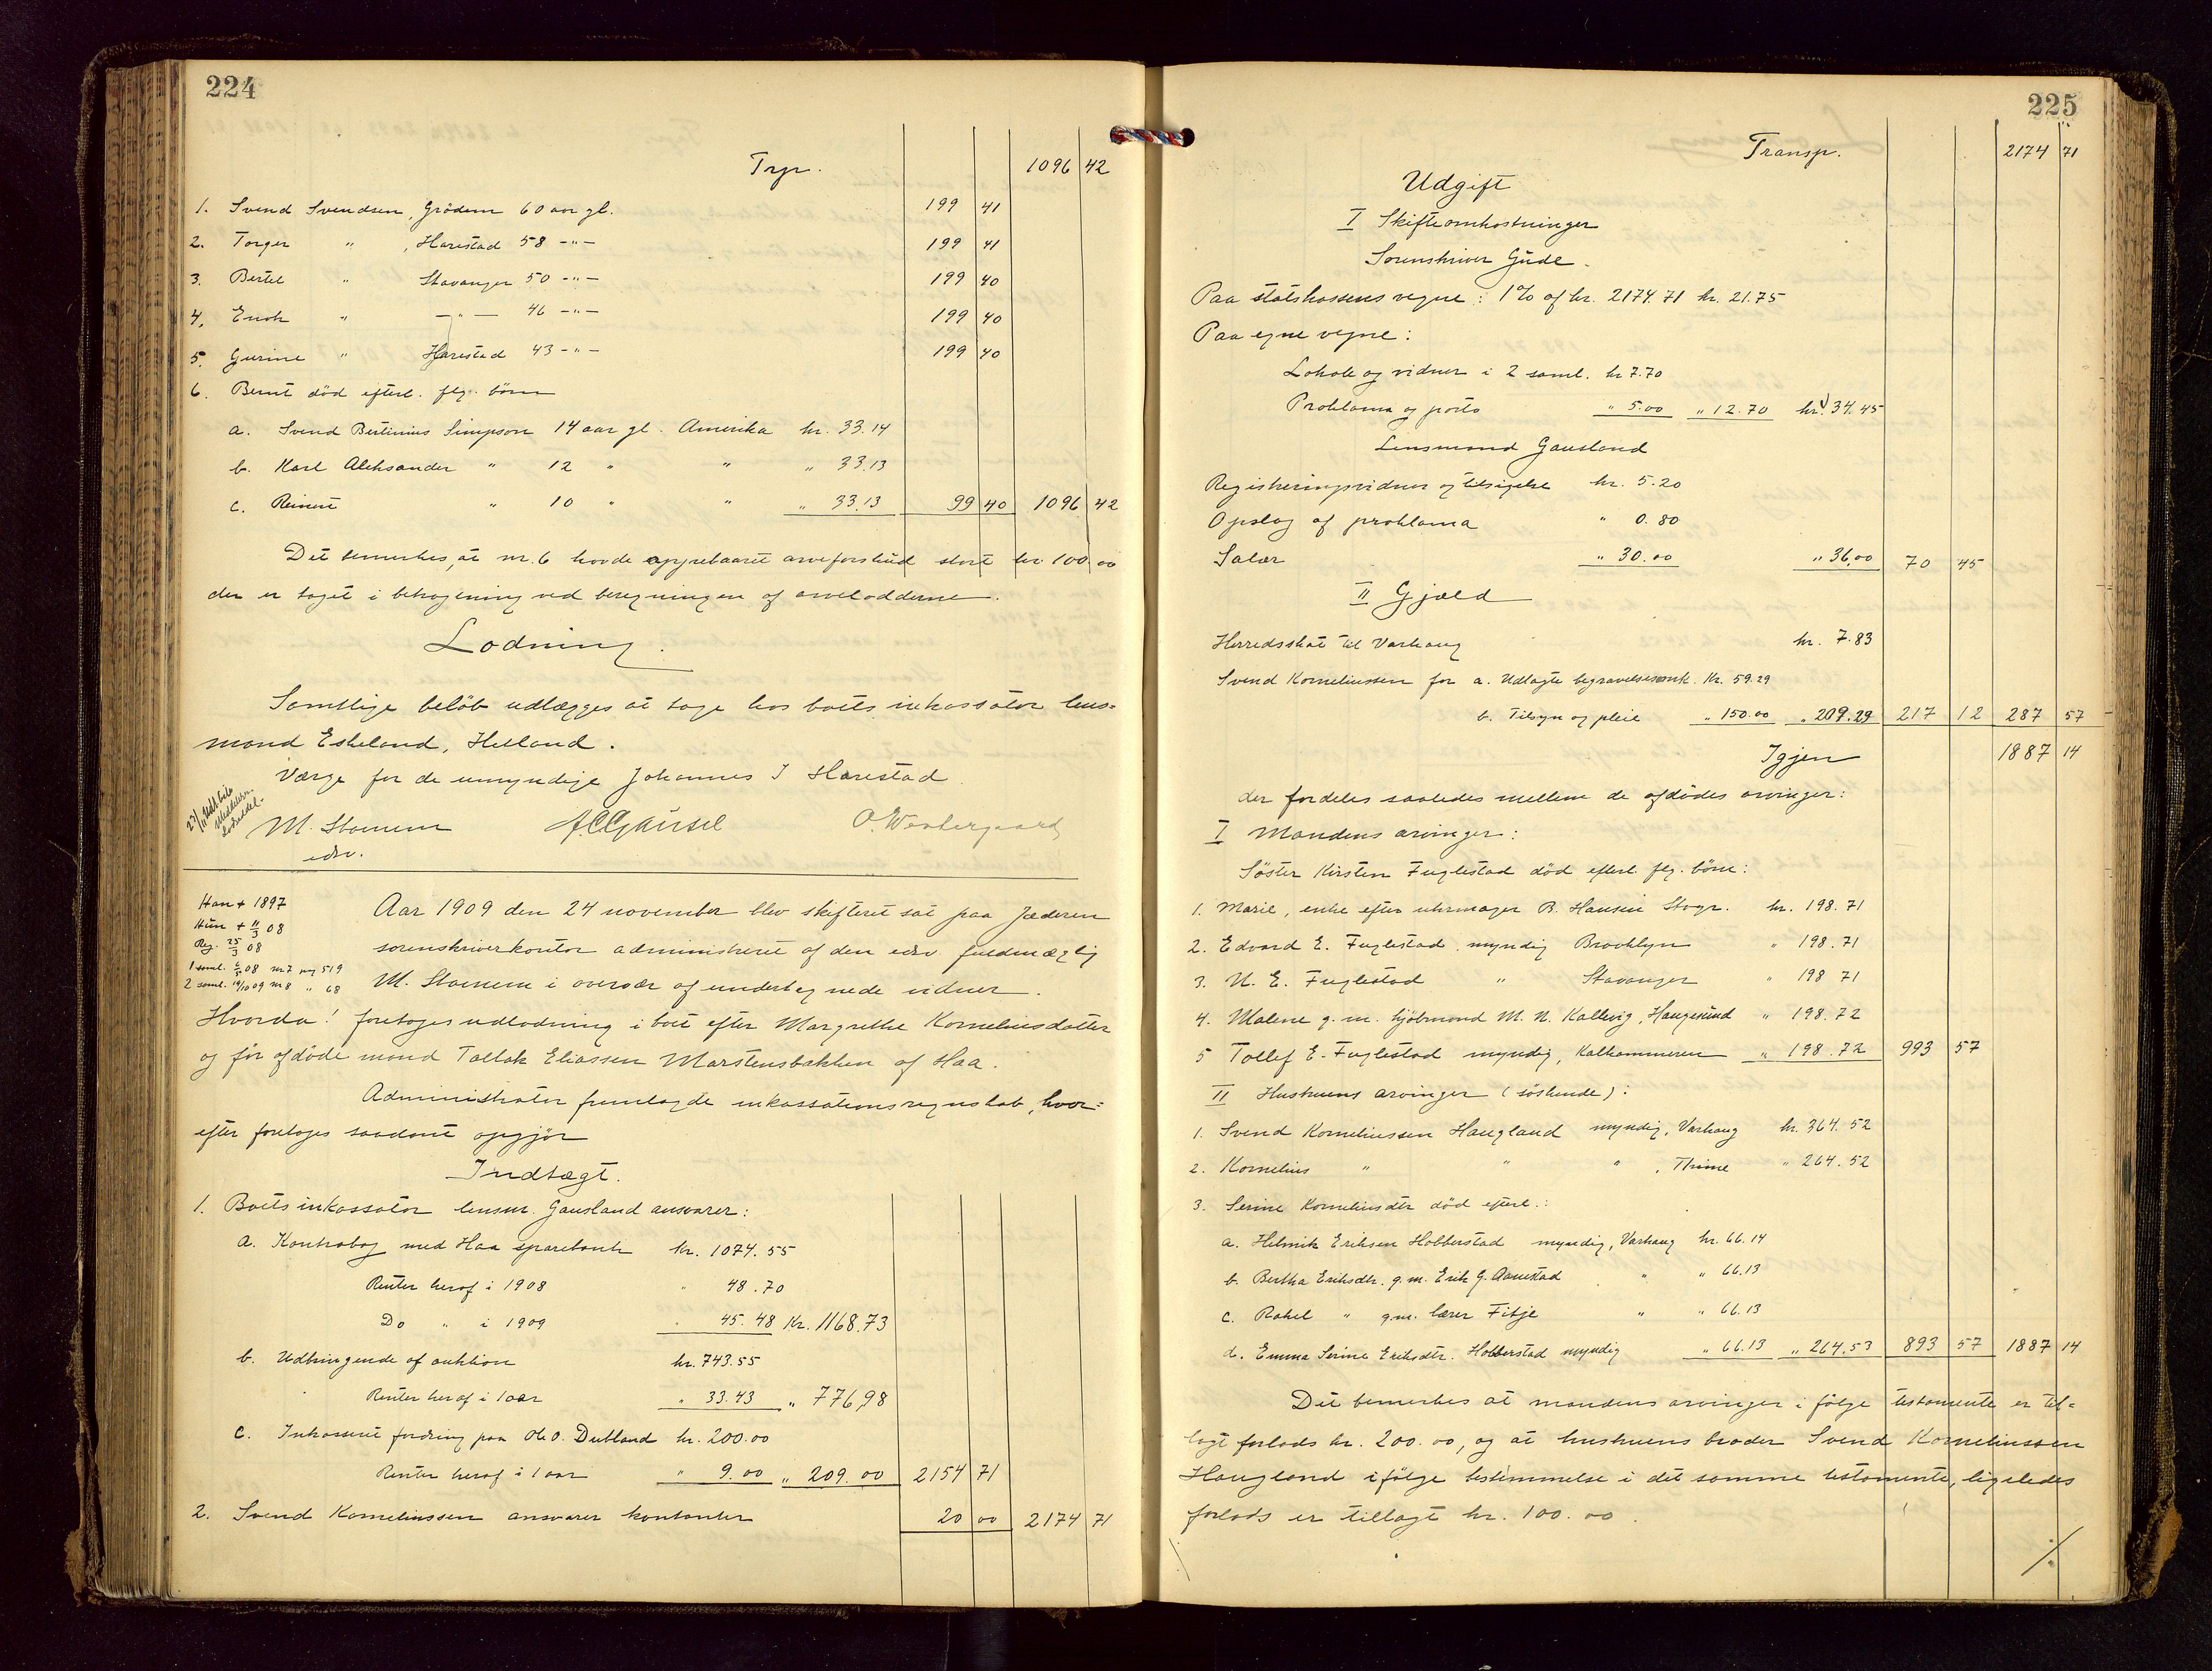 224
Trp. 1096 42
1. Svend Svendsen, Grödem 60 aar gl. 199 41
2. Torger " , Harestad 58 -"- 199 41
3. Bertel " Stavanger 50 -"- 199 40
4. Enok " -"- 46 -"- 199 40
5. Gurine " Harestad 43 -"- 199 40
6. Bernt död efterl. flg. börn
a. Svend Bertinius Simpson 14 aar gl. Amerika kr. 33.14
b. Karl Aleksander " 12 " " " 33.13
c. Reinert " 10 " " " 33.13 99 40 1096 42
Det bemerkes, at nr. 6 havde oppebaaret arveforskud stort kr. 100.00
der er taget i betragtning ved beregningen af arvelodderne.
Lodning.
Samtlige beløb udlægges at tage hos boets inkassator lens-
mand Eskeland, Hetland.
Værge for de umyndige Johannes J Harestad
M. Stornem A C Gausel O. Westergaard
edsv.
Han + 1897
Hun + 11/3 08
Reg. 25/3 08
1 saml. 6/5 08 nr 7 pag 519
2 saml. 19/10 09 nr 8 " 68
Aar 1909 den 24 november blev skifteret sat paa Jæderen
sorenskriverkontor administreret af den edsv. fuldmægtig
M. Stornem i overvær af undertegnede vidner.
Hvorda! foretoges udlodning i boet efter Margrethe Korneliusdatter
og før afdöde mand Tallak Eliassen Marstensbakken af Haa.
Administrator fremlagde inkassationsregnskab, hvor=
efter foretoges saadant opgjör
Indtægt.
1. Boets inkassator lensm. Gausland ansvarer:
a. Kontrabog med Haa sparebank kr. 1074.55
Renter heraf i 1908 " 48.70
Do " i 1909 " 45.48 Kr. 1168.73
b. Udbringende af auktion kr. 743.55
Renter heraf i 1 aar " 33.43 " 776,98
c. Inkasseret fordring paa Ole O. Dubland kr. 200.00
Renter heraf i 1 aar " 9.00 " 209.00 2154 71
2. Svend Korneliussen ansvarer kontanter 20 00 2174 71
225
Transp. 2174 71
Udgift
I Skifteomkostninger
Sorenskriver Gude.
Paa statskassens vegne: 1% af kr. 2174.71 kr. 21.75
Paa egne vegne:
Lokale og vidner i 2 saml. kr 7.70
Proklama og porto " 5.00 " 12.70 kr. 34.45
Lensmand Gausland
Registreringsvidner og tilsigelse kr. 5.20
Opslag af proklama " 0.80
Salær " 30.00 " 36,00 70 45
II Gjæld
Herredsskat til Varhaug kr. 7.83
Svend Korneliussen for a. Udlagte begravelsesomk. Kr. 59.29
b. Tilsyn og pleie " 150.00 " 209.29 217 12 287 57
Igjen 1887 14
der fordeles saaledes mellem de afdödes arvinger:
I Mandens arvinger:
Söster Kirsten Fuglestad död efterl. flg. börn:
1. Marie, enke efter uhrmager B. Hansen Stvgr. kr. 198.71
2. Edvard E. Fuglestad myndig Brooklyn " 198.71
3. N. E. Fuglestad " Stavanger " 198 71
4. Malene g. m. kjöbmand M. N. Kallevig, Haugesund " 198.72
5 Tollef E. Fuglestad myndig, Kalhammeren " 198.72 993 57
II Hustruens arvinger (söskende):
1. Svend Korneliussen Haugland myndig, Varhaug kr. 364.52
2. Kornelius " " " , Thime " 264.52
3. Serine Korneliusdtr död efterl.:
a. Helmik Eriksen Hobberstad myndig, Varhaug kr. 66.14
b. Bertha Eriksdtr. g. m. Erik G. Aanestad " " 66.13
c. Rakel " g.m. lærer Fitje " " 66.13
d. Emma Serine Eriksdtr. Hobberstad myndig " 66.13 " 264.53 893 57 1887 14
Det bemerkes at mandens arvinger i følge testamente er til=
lagt forlods kr. 200.00, og at hustruens broder Svend Korneliussen
Haugland ifölge bestemmelse i det samme testamente, ligeledes
forlods er tillagt kr. 100.00.